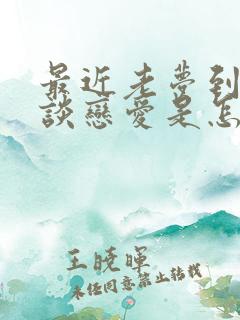 最近老夢到
談戀愛是怎
王曉暉
未经同意禁止转载